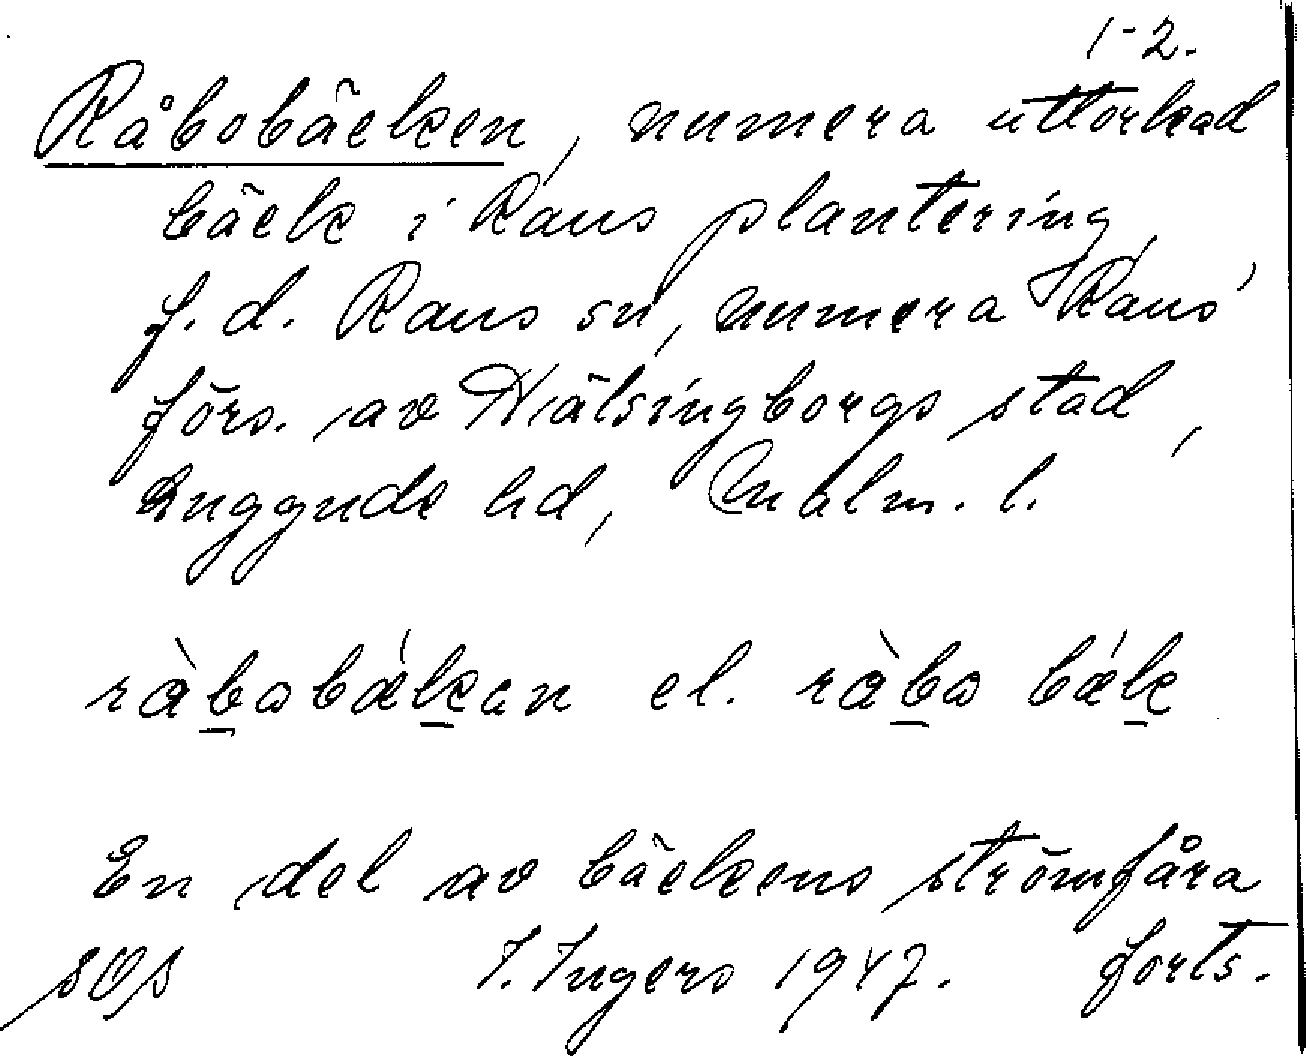 1-2.
Råbobäcken, numera uttorkad
bäck i Raus plantering,
f.d. Raus sn, numera Raus
förs. av Hälsingborgs stad,
Luggude hd, Malm. l.
ràbobǽkan el. ràbo bǽk
En del av bäckens strömfåra
I. Ingers 1947. forts.